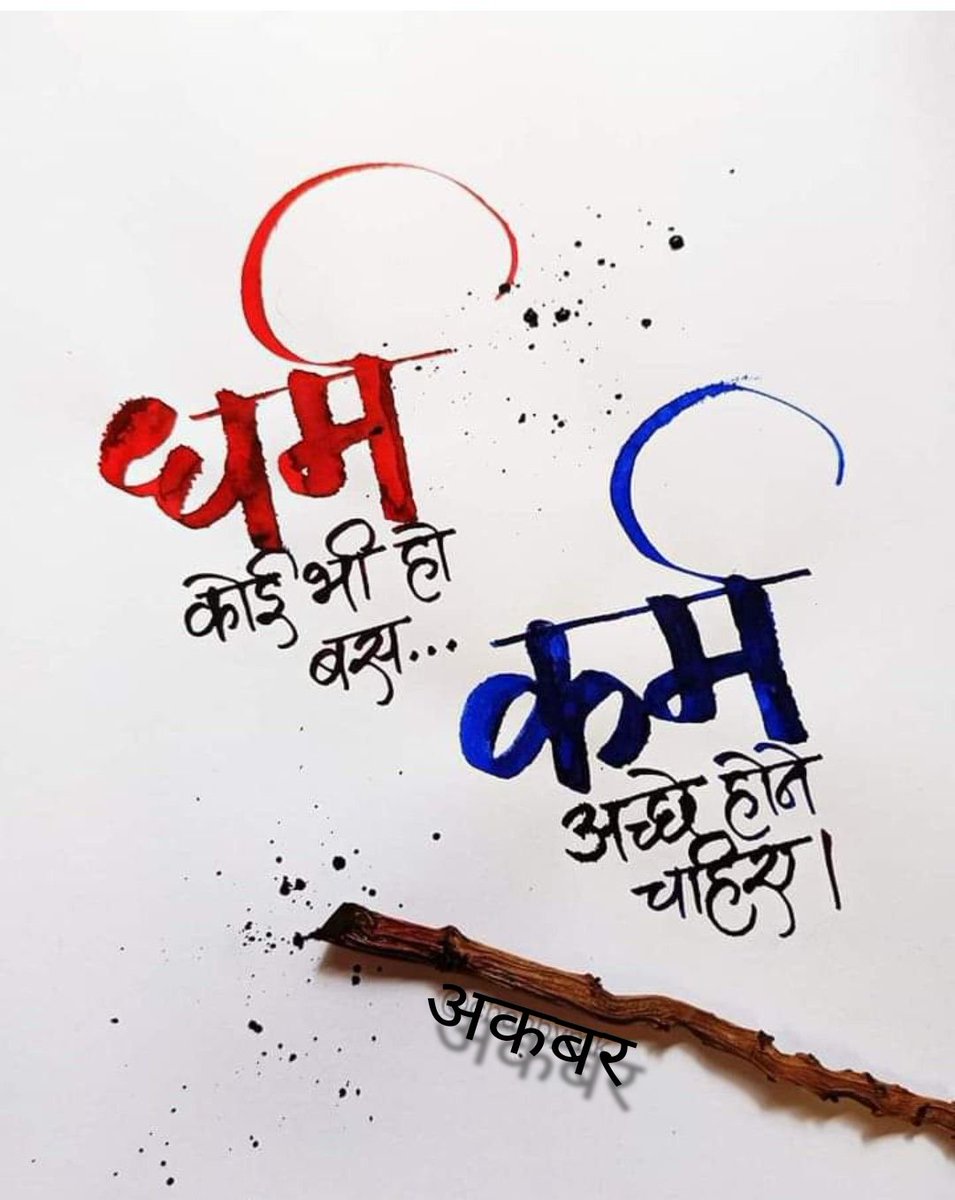 धर्म
कोई भी हो
बस...
कर्म
अच्छे होने
चहिए।
अकबर